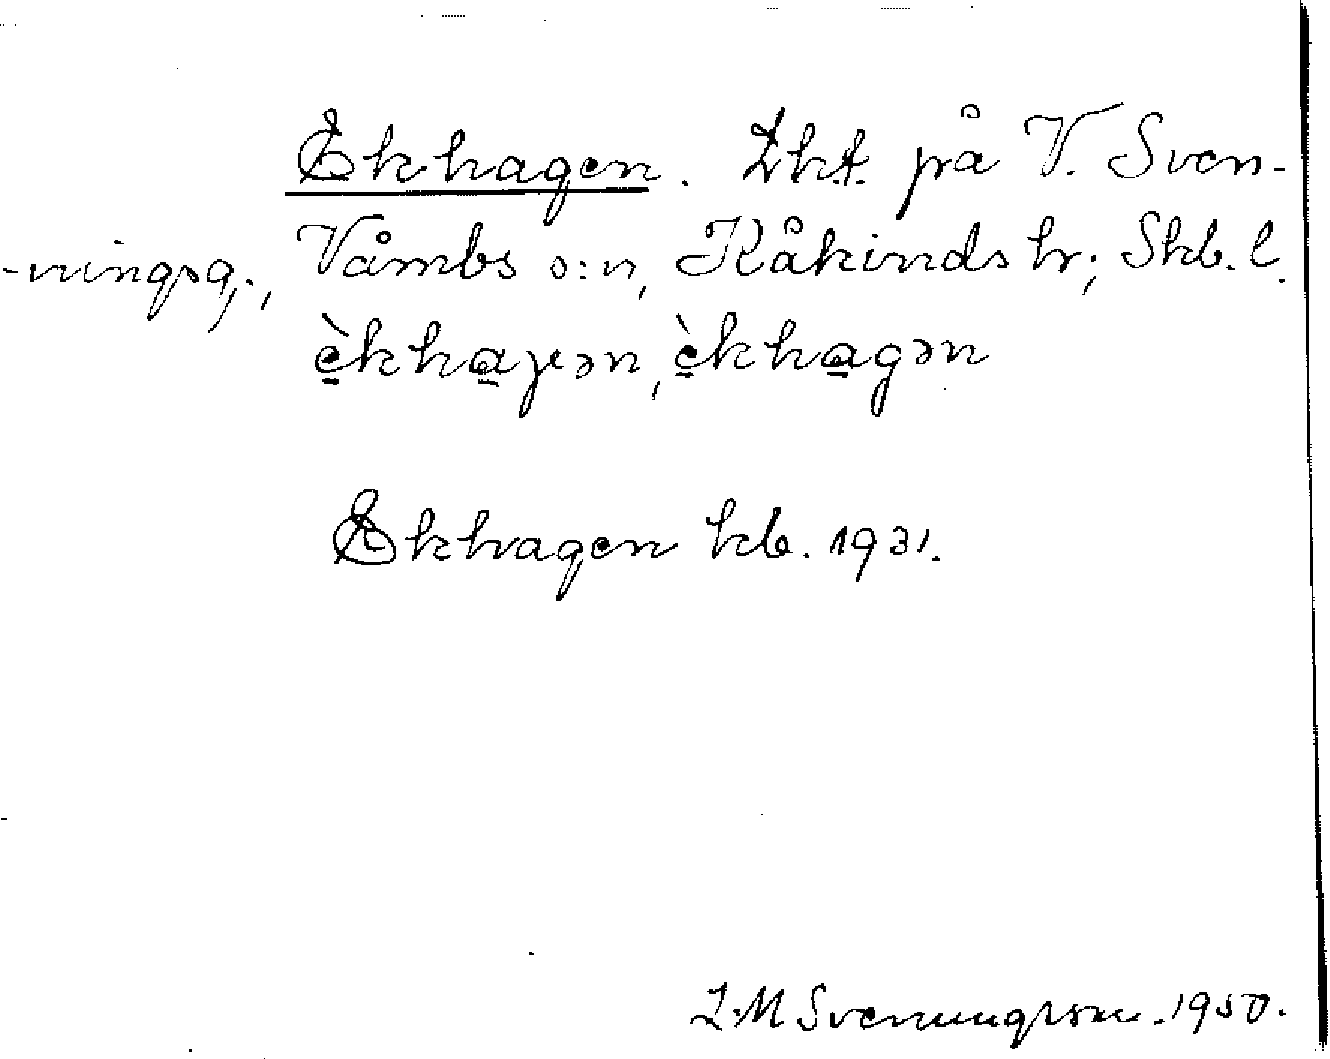 Ekhagen. Lht. på V. Sven-
-ningsg., Våmbs s:n, Kåkinds hr; Skb. l.
ὲkhaɣən, ὲkhagən
Ekhagen kb. 1931.
L.M Svenungsson. 1950.